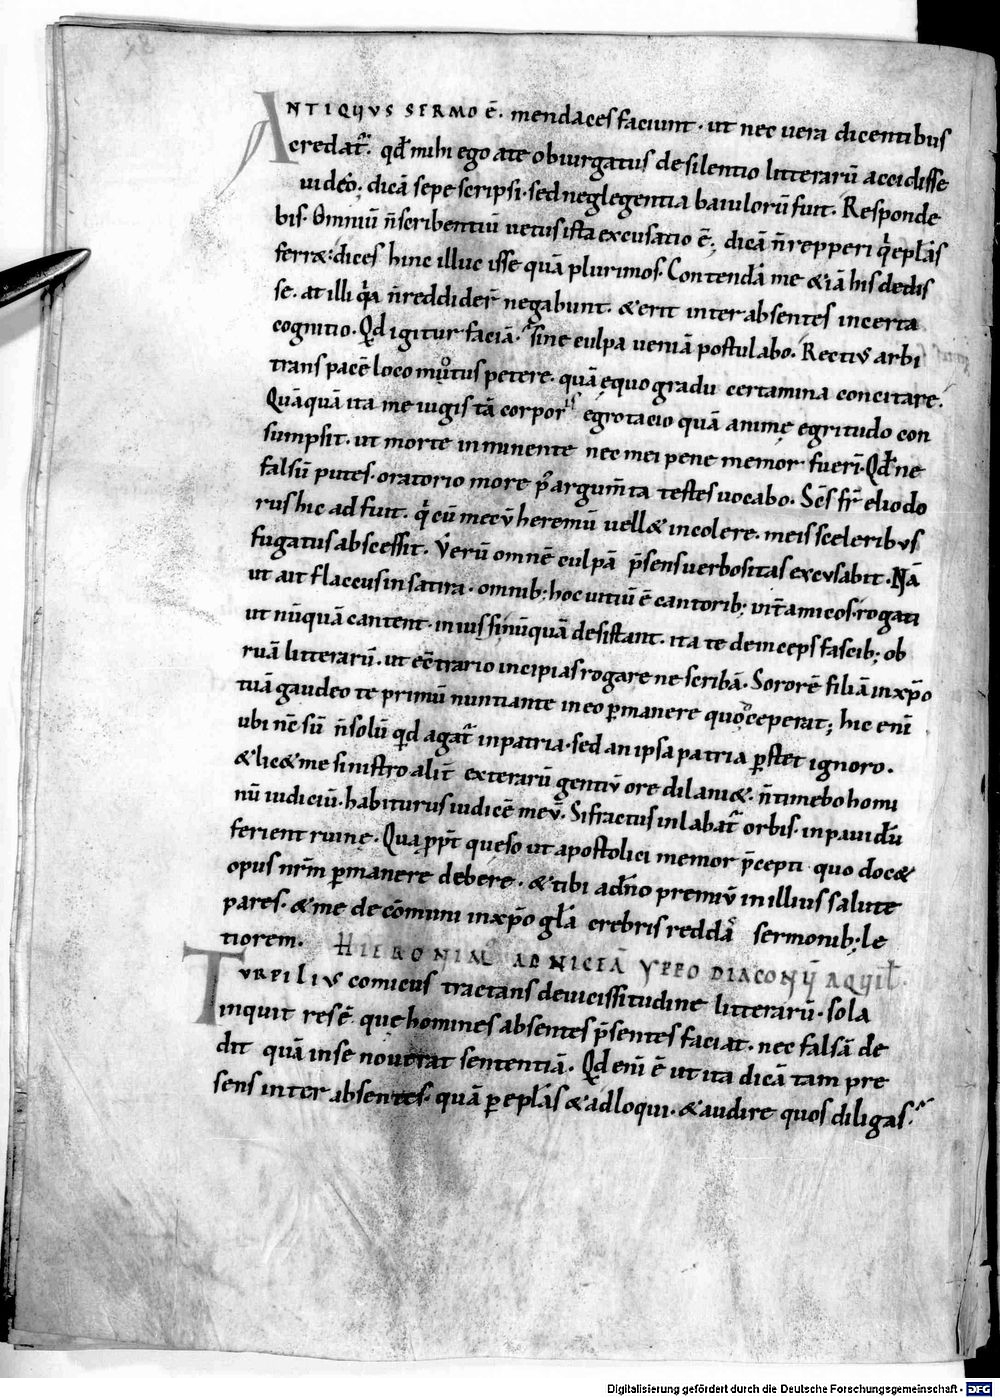 ANTIQVVS SERMO ē. mendaces faciunt. ut nec uera dicentibus
credat᷑. qđ mihi ego a te obiurgatus de silentio litterarū accidisse
uideo; dicā sepe scripsi. sed neglegentia baiulorū fuit. Responde
bis. Omniū n̄ scribentiū uetus ista excusatio ē; dicā n̄ repperi qͥ epl̄as
ferr&: dices hinc illuc isse quā plurimos. Contendā me & iā his dedis
se. at illi qͥa n̄ reddider̄ negabunt. & erit inter absentes incerta
cognitio. Qd igitur faciā. sine culpa ueniā postulabo. Rectiꝰ arbi
trans pacē loco motus petere. quā equo gradu certamina concitare.
Quāquā ita me iugis tā corporis egrotacio quā animę egritudo con
sumpsit. ut morte inminente nec mei pene memor fueri. Qđ ne
falsū putes. oratorio more p̄ argum̄ta testes uocabo. Sc̄s fr̄ eliodo
rus hic adfuit. qͥ cū mecū heremū uell& incolere. meis sceleribus
fugatus abscessit. Verū omnē culpā p̄sens uerbositas excusabit. Nā
ut ait flaccus in satira. omnib; hoc uitiū ē cantorib; int̄ amicos. rogati
ut nūquā cantent. iniussi nūquā desistant. ita te deinceps fascib; ob
ruā litterarū. ut ec̄trario incipias rogare ne scribā. Sororē filiā in xp̄o
tuā gaudeo te primū nuntiante in eo ꝑmanere quo ceperat; hic eni
ubi nc̄ sū n̄ solū qd agat᷑ in patria. sed an ipsa patria ꝑstet ignoro.
& lic& me sinistro alit̄ exterarū gentiū ore dilani&. n̄ timebo homi
nū iudiciū. habiturus iudicē meū. Si fractus inlabat᷑ orbis. inpauidū
ferient ruinę. Quapp̄t queso ut apostolici memor p̄cepti quo doc&
opus nr̄m ꝑmanere debere. & tibi a dn̄o premiū in illius salute
pares. & me de cōmuni in xp̄o gl̄a crebris reddā sermonib; le
tiorem. HIERONIM AD NICEĀ YPPO DIACONŪ AQUIL̄.
TVRPILIVS comicus tractans de uicissitudine litterarū. sola
inquit res ē. que homines absentes p̄sentes faciat. nec falsā de
dit quā in se nouerat sententiā. Qd eni ē ut ita dicā tam pre
sens inter absentes. quā ꝑ epl̄as & adloqui. & audire quos diligas.
Digitalisierung gefördert durch die Deutsche Forschungsgemeinschaft - DFG